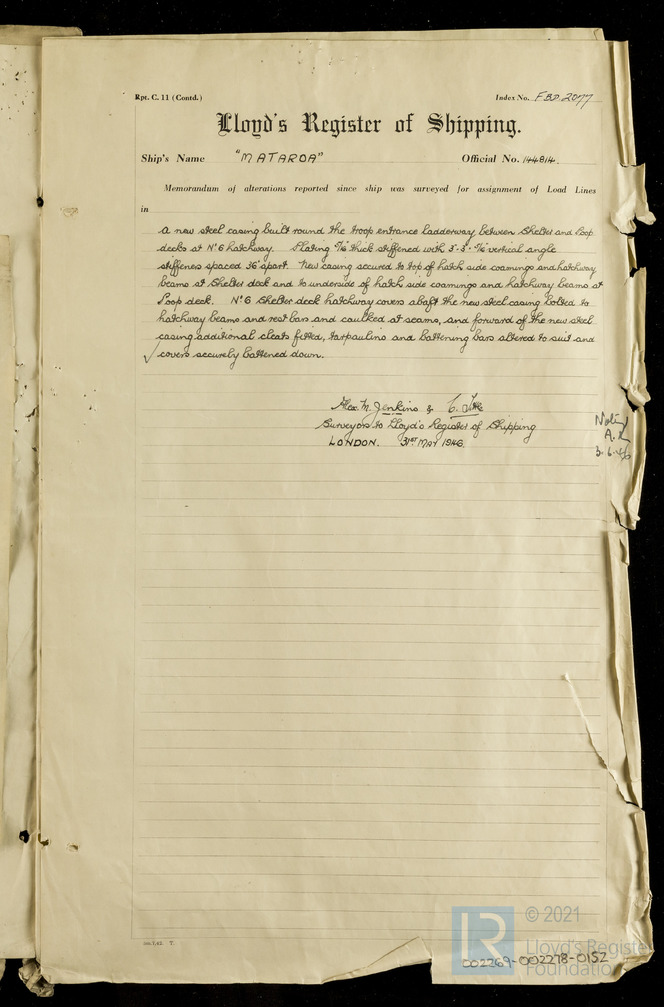 Rpt. C. 11 (Contd.)
Index No. FBD.2077
Lloyd's Register of Shipping.
Ship's Name "MATAROA"
Official No. 144814.
Memorandum of alterations reported since ship was surveyed for assignment of Load Lines
in
A new steel casing built round the troop entrance ladderway between Shelter and Poop
decks at Nº 6 hatchway. Plating thick stiffened with 3"·3"· vertical angle
stiffeners spaced 36" apart. New casing secured to top of hatch side coamings and hatchway
beams at Shelter deck and to underside of hatch side coamings and hatchway beams at
Poop deck. Nº 6 Shelter deck hatchway covers abaft the new steel casing bolted to
hatchway beams and rest bars and caulked at seams, and forward of the new steel
casing additional cleats fitted, tarpaulins and battening bars altered to suit and
✓ covers securely battened down.
Alex. M. Jenkins & C.
Surveyors to Lloyd's Register of Shipping
LONDON. 31ST MAY 1946.
Noted
3.6.46
© 2021
LR
Lloyd's Register
Foundation
002269-002278-0152